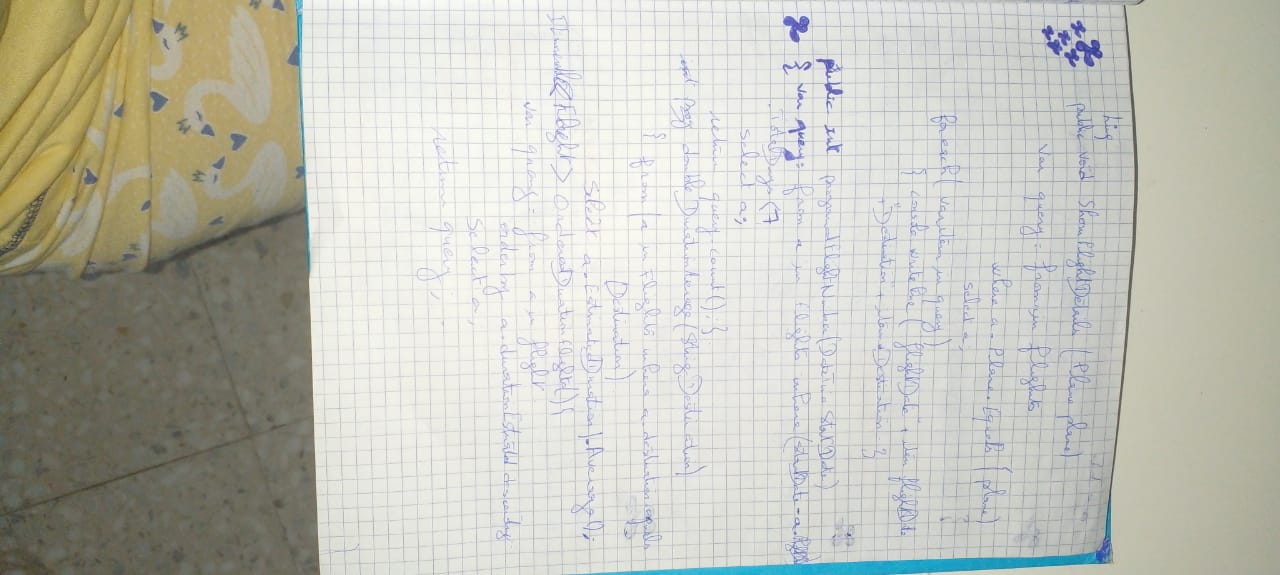 linq
public void ShowFlightDetails (Plane plane)
var query = from in flights
where a.Plane.Equals (plane)
select a;
foreach (var item in query)
{ console WriteLine ( flightDate + flightDate
+ "Destination" + Destination }
public int programmedFlightNumber (Datetime StartDate)
{ var query = from a in flights where (StartDate - a.
TotalDays < 7
select a;
return query.count(); }
double DurationAverage (String Destination)
{ from (a in Flights where a.destination equals
(Destination)
Select a.EstimatedDuration).Average();
<Flight> OrderedDurationFlights() {
var query = from a in flight
order by a.duration descending
select a;
return query;